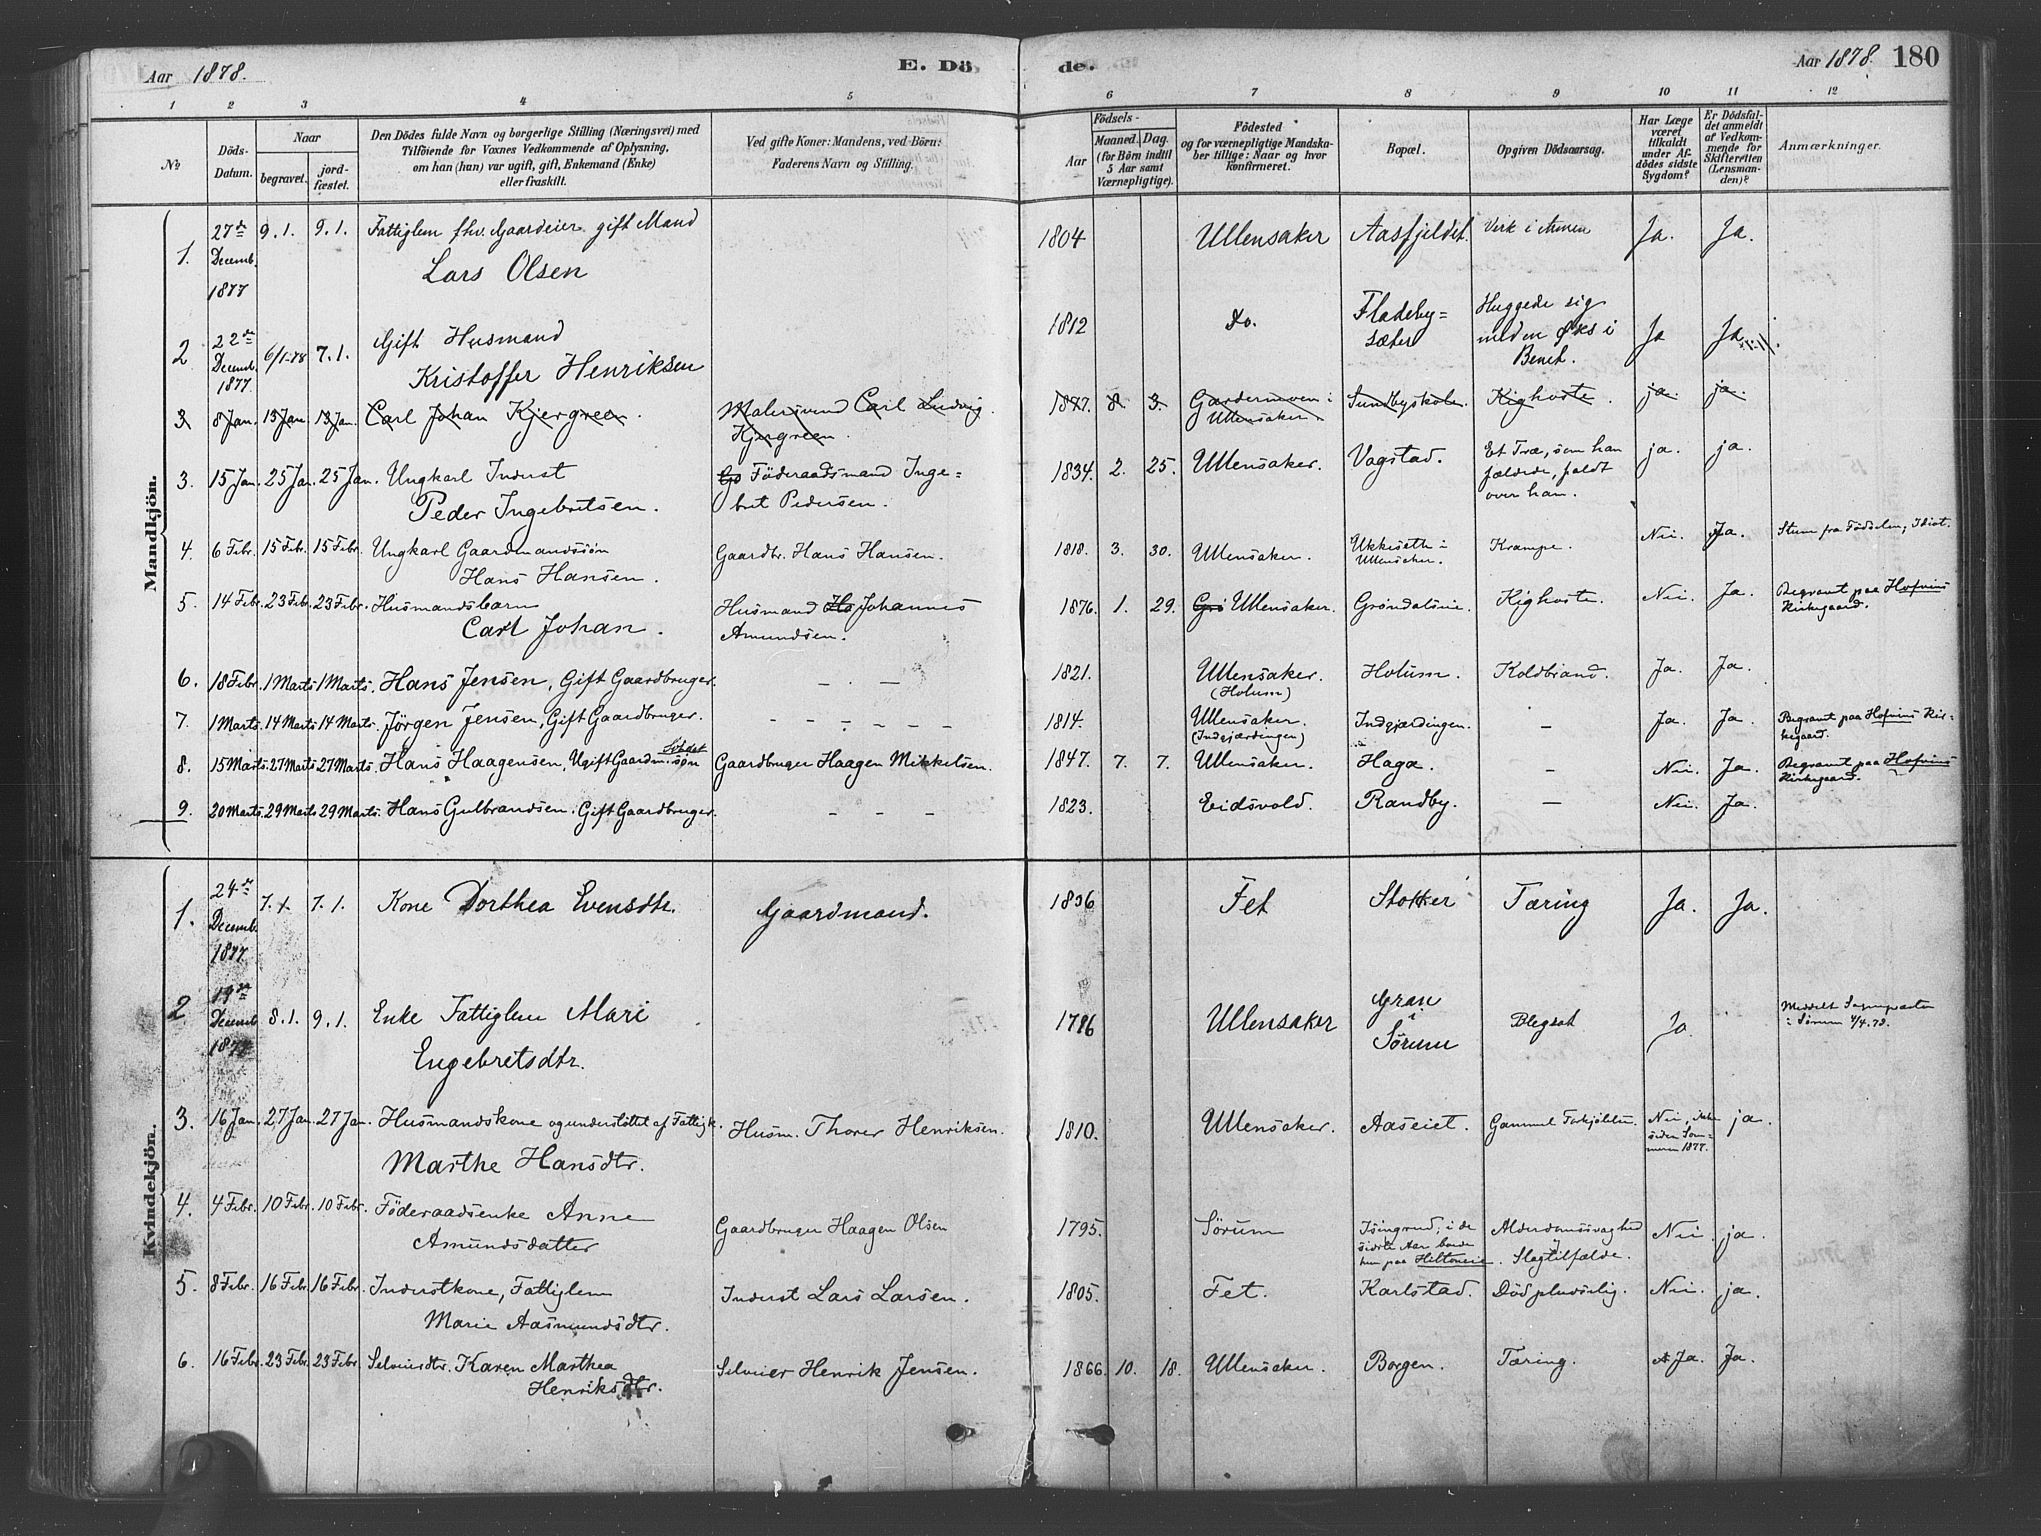 Aar 1878.
E. Dö
de.
Aar 1878.
180
1 2 3 4 5 6 7 8 9 10 11 12
No
Döds-Datum.
Naar
begravet.
jord-fæstet.
Den Dödes fulde Navn og borgerlige Stilling (Næringsvei) med
Tilföiende for Voxnes Vedkommende af Oplysning,
om han (hun) var ugift, gift, Enkemand (Enke)
eller fraskilt.
Ved gifte Koner: Mandens, ved Börn:
Faderens Navn og Stilling.
Födsels-
Aar
Maaned. Dag.
(for Börn indtil
5 Aar samt
Værnepligtige).
Födested
og for værnepligtige Mandska-
ber tillige: Naar og hvor
konfirmeret.
Bopæl.
Opgiven Dödsaarsag.
Har Læge
været
tilkaldt
under Af-
dødes sidste
Sygdom?
Er Dödsfal-
det anmeldt
af Vedkom-
mende for
Skifteretten
(Lensman-
den)?
Anmærkninger.
Mandkjön.
1. 27de Decemb. 1877 9.1. 9.1. Fattiglem fhv. Gaardeier gift Mand
Lars Olsen
1804 Ullensaker Aasfjeldet. Værk i Armen Ja. Ja.
2 22de Decemb. 1877. 6/1-78 7.1. Gift Husmand
Kristoffer Henriksen
1812 Do. Fladeby=
sæter Huggede sig
med en Øks i
Benet. Ja Ja
3 8 Jan. 13 Jan. 13 Jan. Carl Johan Kjergreen. Malersvend Carl Ludvig
Kjergreen. 1877. 8 3. Gardermoen i
Ullensaker. Sundbyskole. Kighoste. ja. ja.
3. 15 Jan. 25 Jan. 25 Jan. Ungkarl Inderst
Peder Ingebretsen. Föderaadsmand Inge=
bret Pedersen. 1834. 2. 25. Ullensaker. Vagstad. Et Træ, som han
fældede, faldt
over ham. ja. ja.
4. 6 Febr. 15 Febr. 15 Febr. Ungkarl Gaardmandssøn
Hans Hansen. Gaardbr. Hans Hansen. 1818. 3. 30. Ullensaker. Ukkiseth i
Ullensaker. Krampe. Nei. Ja. Stum fra Fødselen, Idiot.
5. 14 Febr. 23 Febr. 23 Febr. Husmandsbarn
Carl Johan. Husmand Johannes
Amundsen. 1876. 1. 29. Ullensaker. Grøndalseie. Kighoste. Nei. Ja. Begravet paa Hofvins
Kirkegaard.
6. 18 Febr. 1 Marts 1 Marts. Hans Jensen, Gift Gaardbruger. — . — 1821. Ullensaker.
(Holum) Holum. Koldbrand. Ja. Ja.
7. 1 Marts. 14 Marts 14 Marts. Jørgen Jensen, Gift Gaardbruger. — — — — — — 1814. Ullensaker.
(Indgjærdingen) Indgjærdingen. — Ja. Ja. Begravet paa Hofvins Kir-
kegaard.
8. 15 Marts. 27 Marts 27 Marts. Hans Haagensen, Ugift Gaardm.søn Gaardbruger Haagen Mikkelsen. 1847. 7. 7. Ullensaker. Haga. — Nei. Ja. Begravet paa Hofvins
Kirkegaard.
9. 20 Marts. 29 Marts 29 Marts. Hans Gulbrandsen. Gift Gaardbruger. — — — 1823. Eidsvold. Randby. — Nei. Ja.
Kvindekjön.
1. 24de Decemb. 1877 7.1 7.1. Kone Dorthea Evensdtr. Gaardmand. 1836 Fet Stokker Tæring Ja. Ja.
2 19de Decemb 1877 8.1. 9.1. Enke Fattiglem Mari
Engebretsdtr. 1786 Ullensaker Gran
i
Sørum Blegsot Ja. Meddelt Sognepræsten
i Sørum 4/4.78.
3. 16 Jan. 27 Jan. 27 Jan. Husmandskone og understöttet af Fattigk.
Marthe Hansdtr. Husm. Thorer Henriksen. 1810. Ullensaker. Aaseiet. Gammel Forkjölelse. Nei, ikke
siden Som=
meren 1877. ja.
4. 4 Febr. 10 Febr. 10 Febr. Föderaadsenke Anne
Amundsdatter Gaardbruger Haagen Olsen 1795. Sørum Isingrud; i de
sidste Aar boede
hun paa Hiltoneie. Alderdomssvaghed
Slagtilfælde. Nei. ja.
5. 8 Febr. 16 Febr. 16 Febr. Inderstkone, Fattiglem
Marie Aasmundsdtr. Inderst Lars Larsen. 1805. Fet. Karlstad. Död pludselig. Nei. ja.
6. 16 Febr. 23 Febr. 23 Febr. Selveierdtr. Karen Marthea
Henriksdtr. Selveier Henrik Jensen. 1866 10. 18. Ullensaker. Borgen. Tæring. Ja. Ja.